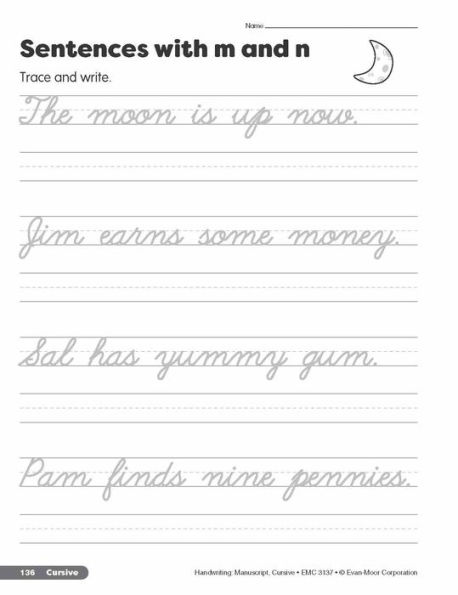 Name
Sentences with m and n
Trace and write.
The moon is up now.
Jim earns some money.
Sal has yummy gum.
Pam finds nine pennies.
136 Cursive
Handwriting: Manuscript, Cursive • EMC 3137 • © Evan-Moor Corporation